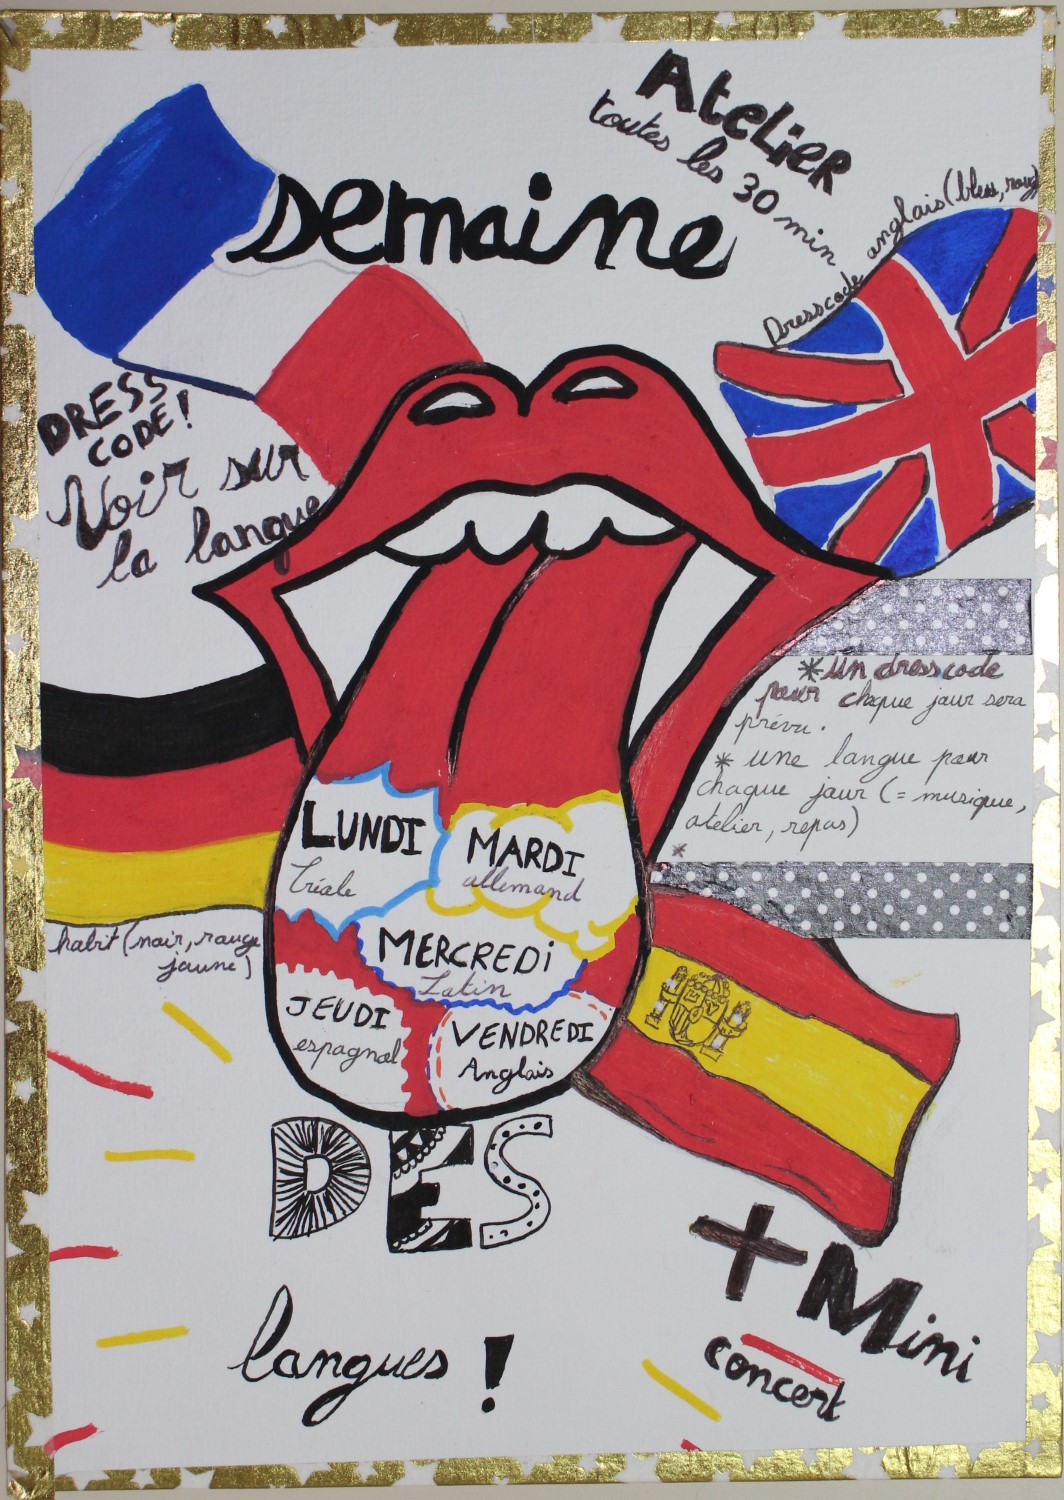 Atelier
toutes les 30 min
semaine
Dresscode anglais (bleu, roug
DRESS
CODE!
Voir sur
la langue
*Un dresscode
pour chaque jour sera
prévu.
* une langue pour
chaque jour (= musique,
atelier, repas)
*
LUNDI
MARDI
allemand
MERCREDI
Latin
habit (noir, rouge
jaune)
JEUDI
espagnol
VENDREDI
Anglais
DES
langues !
+ Mini
concert